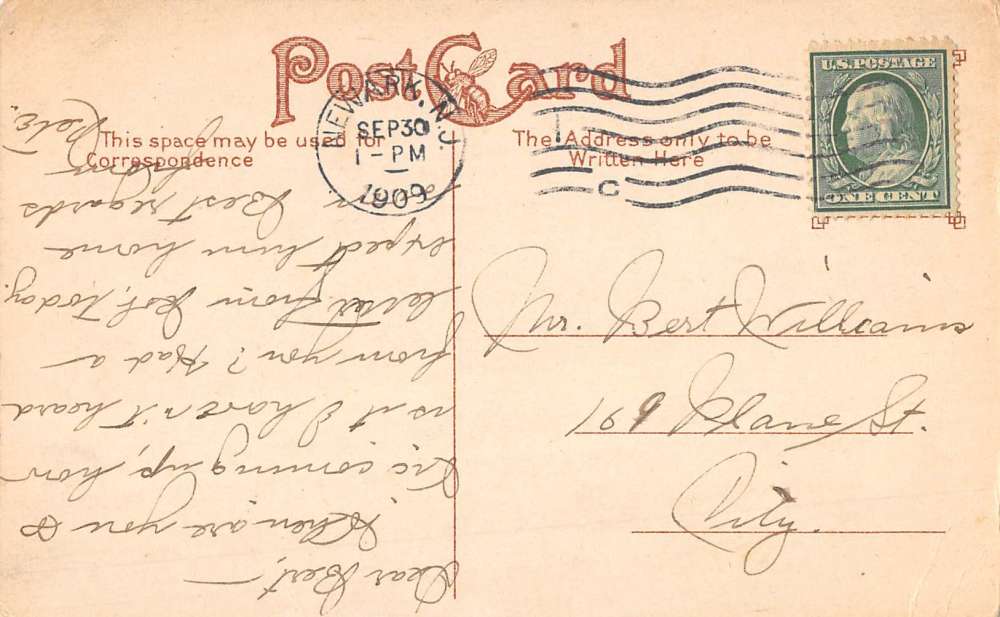 Post Card
This space may be used for
Correspondence
The Address only to be
Written Here
NEWARK, N.J.
SEP 30
1-PM
1909
C
U.S. POSTAGE
ONE CENT
Mr. Bert Williams
169 Plane St.
City.
Dear Bert,—
When are you &
Vic coming up, how
is it I haven't heard
from you? Had a
letter from Jos, today.
expect him home
Best regards
from